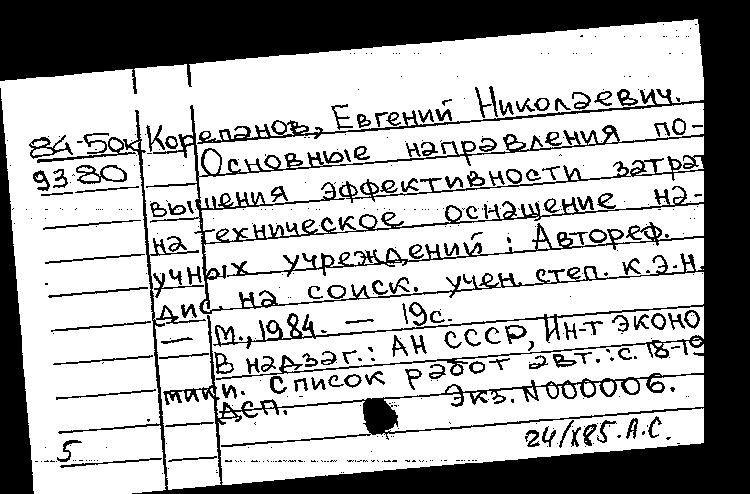 84-50к Корепанов, Евгений Николаевич.
93-80 Основные направления по-
вышения эффективности затрат
на техническое оснащение на-
учных учреждений : Автореф.
дис. на соиск. учен. степ. к.э.н.
— М., 1984. — 19с.
В надзаг.: АН СССР, Ин-т эконо
мики. Список работ авт.: с. 18-19
ДСП. Экз. N000006.
5 24/X85. А.С.